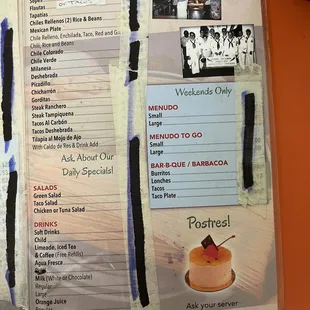 Sopes
Flautas
Tapatias
or TACOS
Chiles Rellenos (2) Rice & Beans
Mexican Plate
Chile Relleno, Enchilada, Taco, Red and
Chili, Rice and Beans
Chile Colorado
Chile Verde
Milanesa
Deshebrada
Picadillo
Chicharrón
Gorditas
Steak Ranchero
Steak Tampiquena
Tacos Al Carbón
Tacos Deshebrada
Tilapia al Mojo de Ajo
With Caldo de Res & Drink Add
Ask About Our
Daily Specials!
SALADS
Green Salad
Taco Salad
Chicken or Tuna Salad
DRINKS
Soft Drinks
Child
Limeade, Iced Tea
& Coffee (Free Refills)
Agua Fresca
Milk (White or Chocolate)
Regular
Large
Orange Juice
Weekends Only
MENUDO
Small
Large
MENUDO TO GO
Small
Large
BAR-B-QUE / BARBACOA
Burritos
Lonches
Tacos
Taco Plate
Postres!
Ask your server